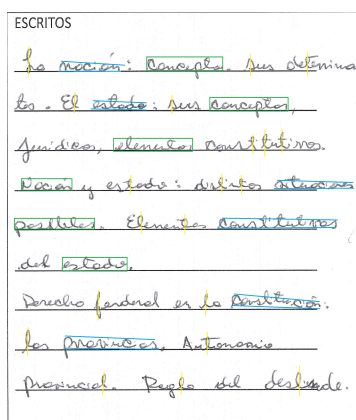 ESCRITOS
La nación: concepto. Sus determina
tos. El estado: sus conceptos,
Jurídicos, elementos constitutivos.
Nación y estado: distintas situaciones
posibles. Elementos constitutivos
del estado.
Derecho federal es la constitución:
las provincias. Autonomía
provincial. Regla del deslinde.